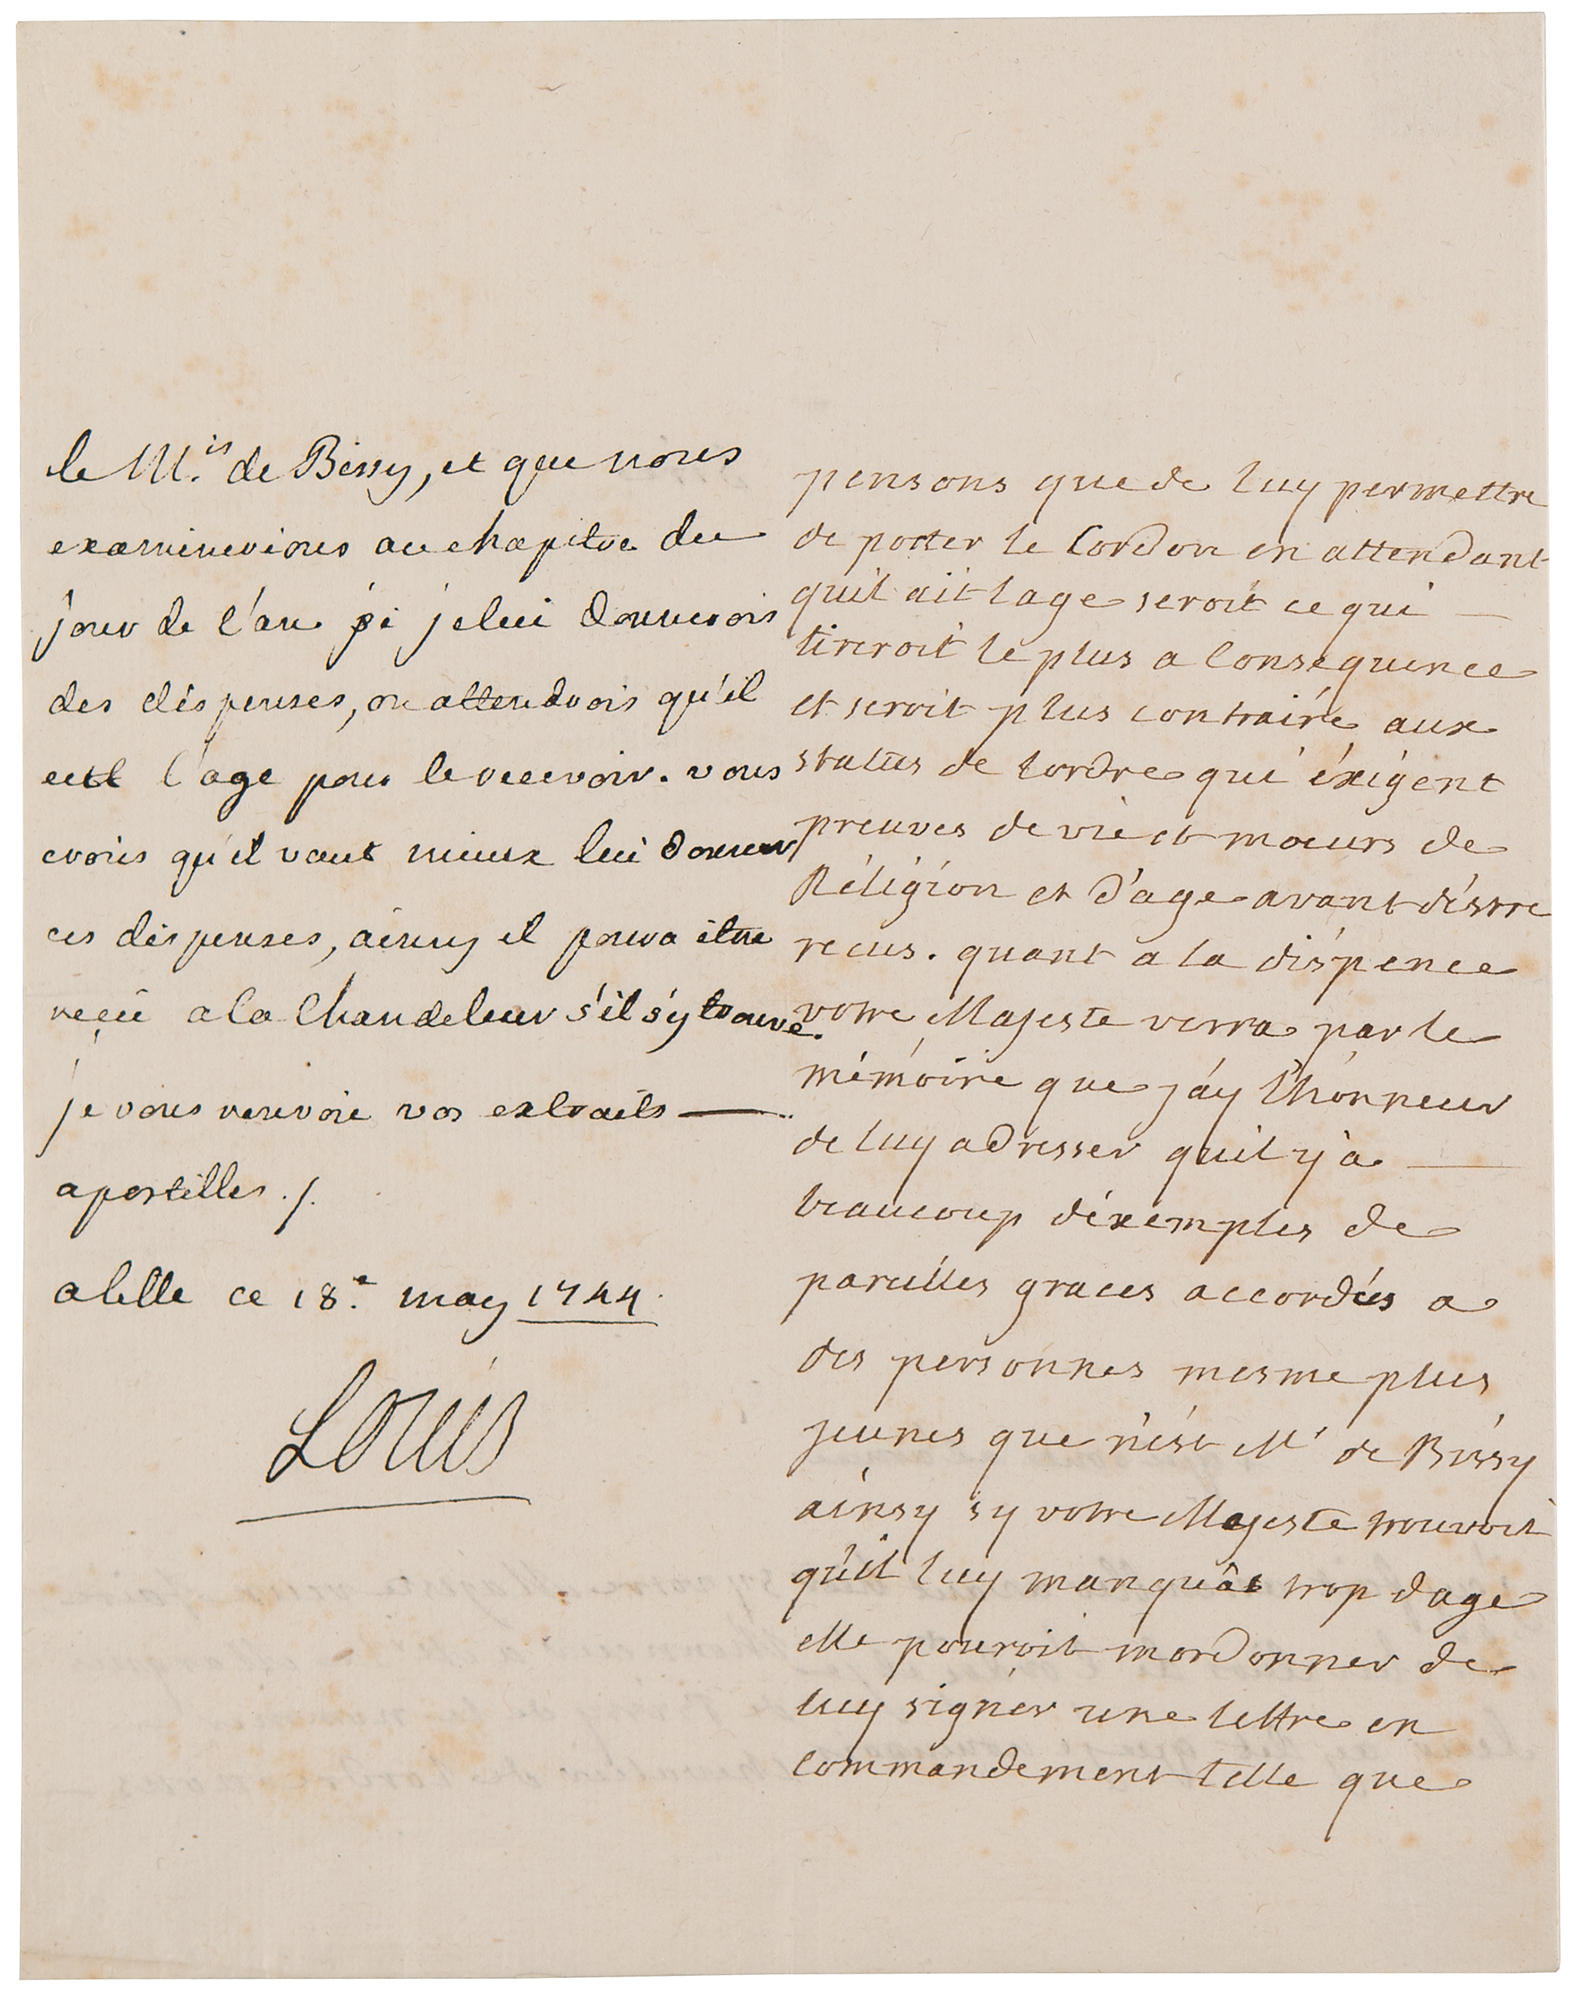 le M.is de Bissy, et que nous
examinerions au chapitre du
jour de l'an si je lui donnerois
des dispenses, ou attendrois qu'il
eut l'age pour le recevoir. vous
crois qu'il vaut mieux lui donner
ces dispenses, ainsy il poura être
reçû a la Chandeleur s'il s'y trouve.
je vous renvoie vos extraits
apostillés ./.
a lille ce 18.e may 1744.
Louis
pensons que de luy permettre
de porter le Cordon en attendant
quil ait lage seroit ce qui
tireroit le plus a Consequence
et seroit plus contraire aux
statuts de lordre qui éxigent
preuves de vie et moeurs de
Réligion et d'age avant déstre
recus. quant a la dispence
votre Majeste verra par le
mémoire que j'ay l'honneur
de luy adresser quil y a
beaucoup déxemples de
pareilles graces accordées a
des personnes mesme plus
jeunes que n'est Mr de Bissy
ainsy sy votre Majeste trouvoit
qu'il luy manquât trop dage
elle pouroit mordonner de
luy signer une lettre en
Commandement telle que